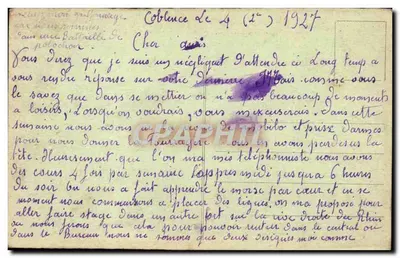 Coblence Le 4 (2) 1927
Cher
Vous direz que je suis un négligent d'attendre si Long temp a
vous rendre réponse sur votre dernière Mais comme vous
le savez que dans se métier on n'a pas beaucoup de moments
a loisirs, Lorsqu'on voudrais, vous m'excuserais. Dans cette
semaine nous avons et prise d'armes
pour nous donner la nous avons par dessus la
tête. Heureusement que l'on ma mis téléphoniste nous avons
des cours 4 fois par semaine L'après midi jusqu'a 6 heures
du soir on nous a fait apprendre le morse par cœur et en se
moment nous commençons a placer des lignes, on ma propose pour
aller faire stage dans un autre fort sur la rive droite du Rhin
ou nous ferons que cela pour pouvoir rentrer dans le central ou
dans le Bureau nous ne sommes que deux désignés moi comme
CPARAMA